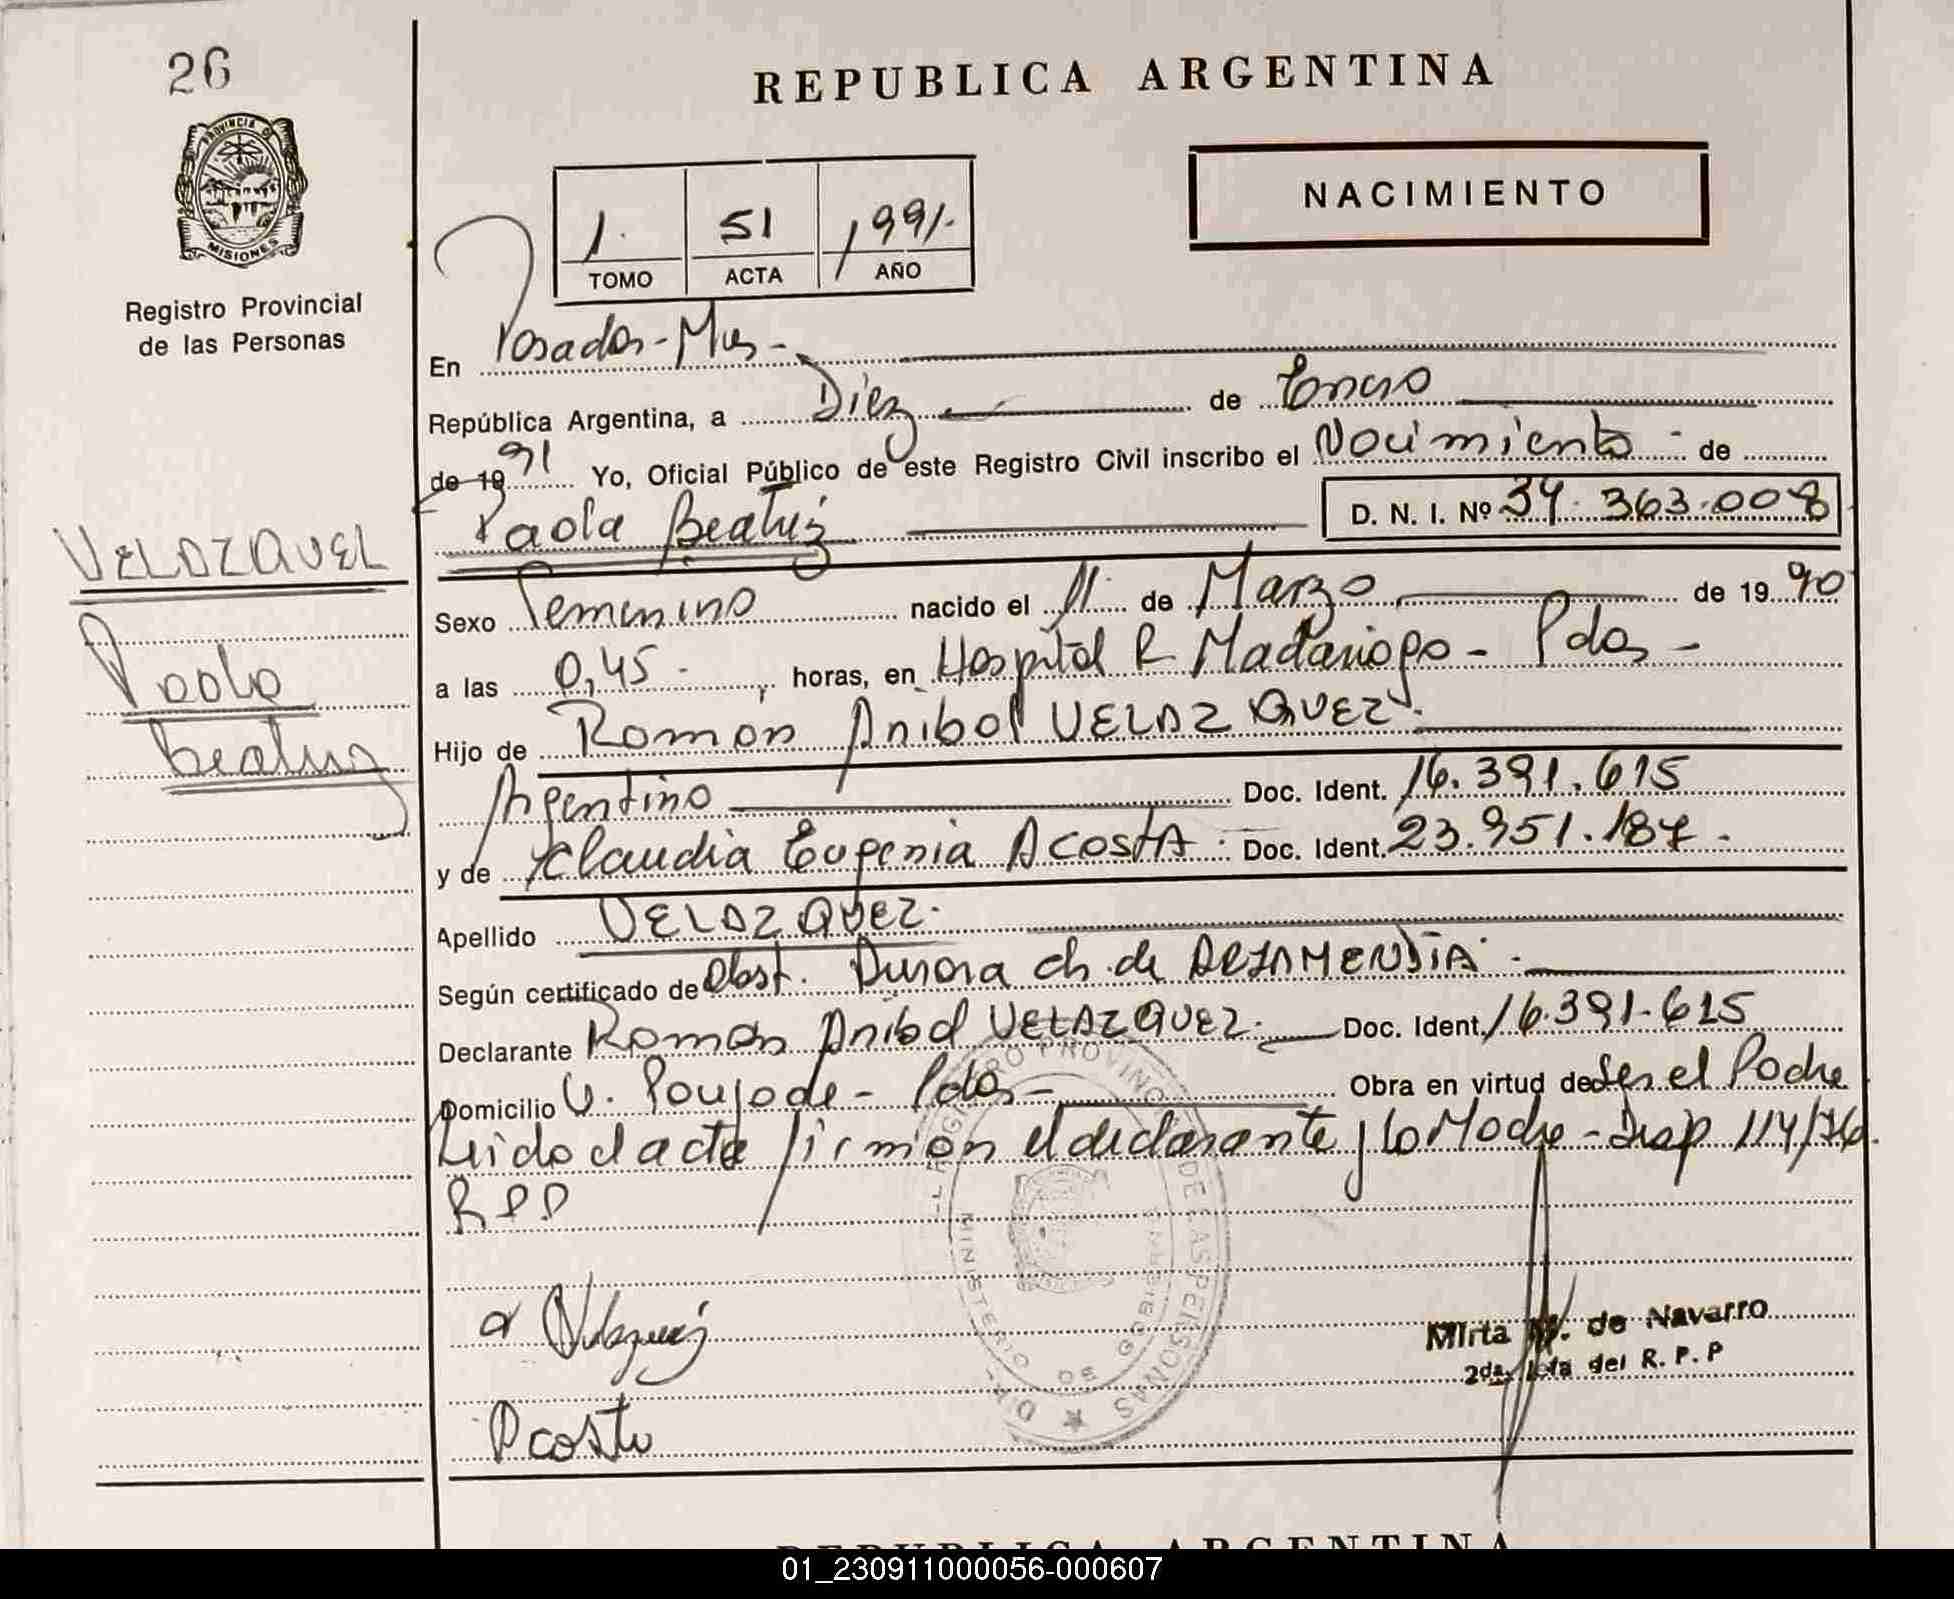 26
PROVINCIA DE
MISIONES
Registro Provincial
de las Personas
VELAZQUEZ
Paola
Beatriz
REPUBLICA ARGENTINA
NACIMIENTO
1. 51 1991.
TOMO ACTA AÑO
En Posadas-Mnes-
República Argentina, a Diez de Enero
de 1991 Yo, Oficial Público de este Registro Civil inscribo el Nacimiento - de
Paola Beatriz D. N. I. Nº 34.363.008
Sexo Femenino nacido el 11. de Marzo de 1990
a las 0,45 - horas, en Hospital R Madariaga - Pdas -
Hijo de Román Anibal VELAZQUEZ.
Argentino Doc. Ident. 16.391.615
y de Claudia Eugenia ACOSTA. Doc. Ident. 23.951.187.
Apellido VELAZQUEZ.
Según certificado de Obst. Aurora ch. de ARIZMENDIA.
Declarante Román Anibal VELAZQUEZ. Doc. Ident. 16.391.615
Domicilio V. Poujade - Pdas - Obra en virtud de Ser el Padre
Leido el acta firman el declarante y la Madre - Disp 114/76.
RPP
REGISTRO PROVINCIAL DE LAS PERSONAS
MINISTERIO DE GOBIERNO
MISIONES
Velazquez
Acosta
Mirta M. de Navarro
2da. Jefa del R. P. P
REPUBLICA ARGENTINA
01_230911000056-000607